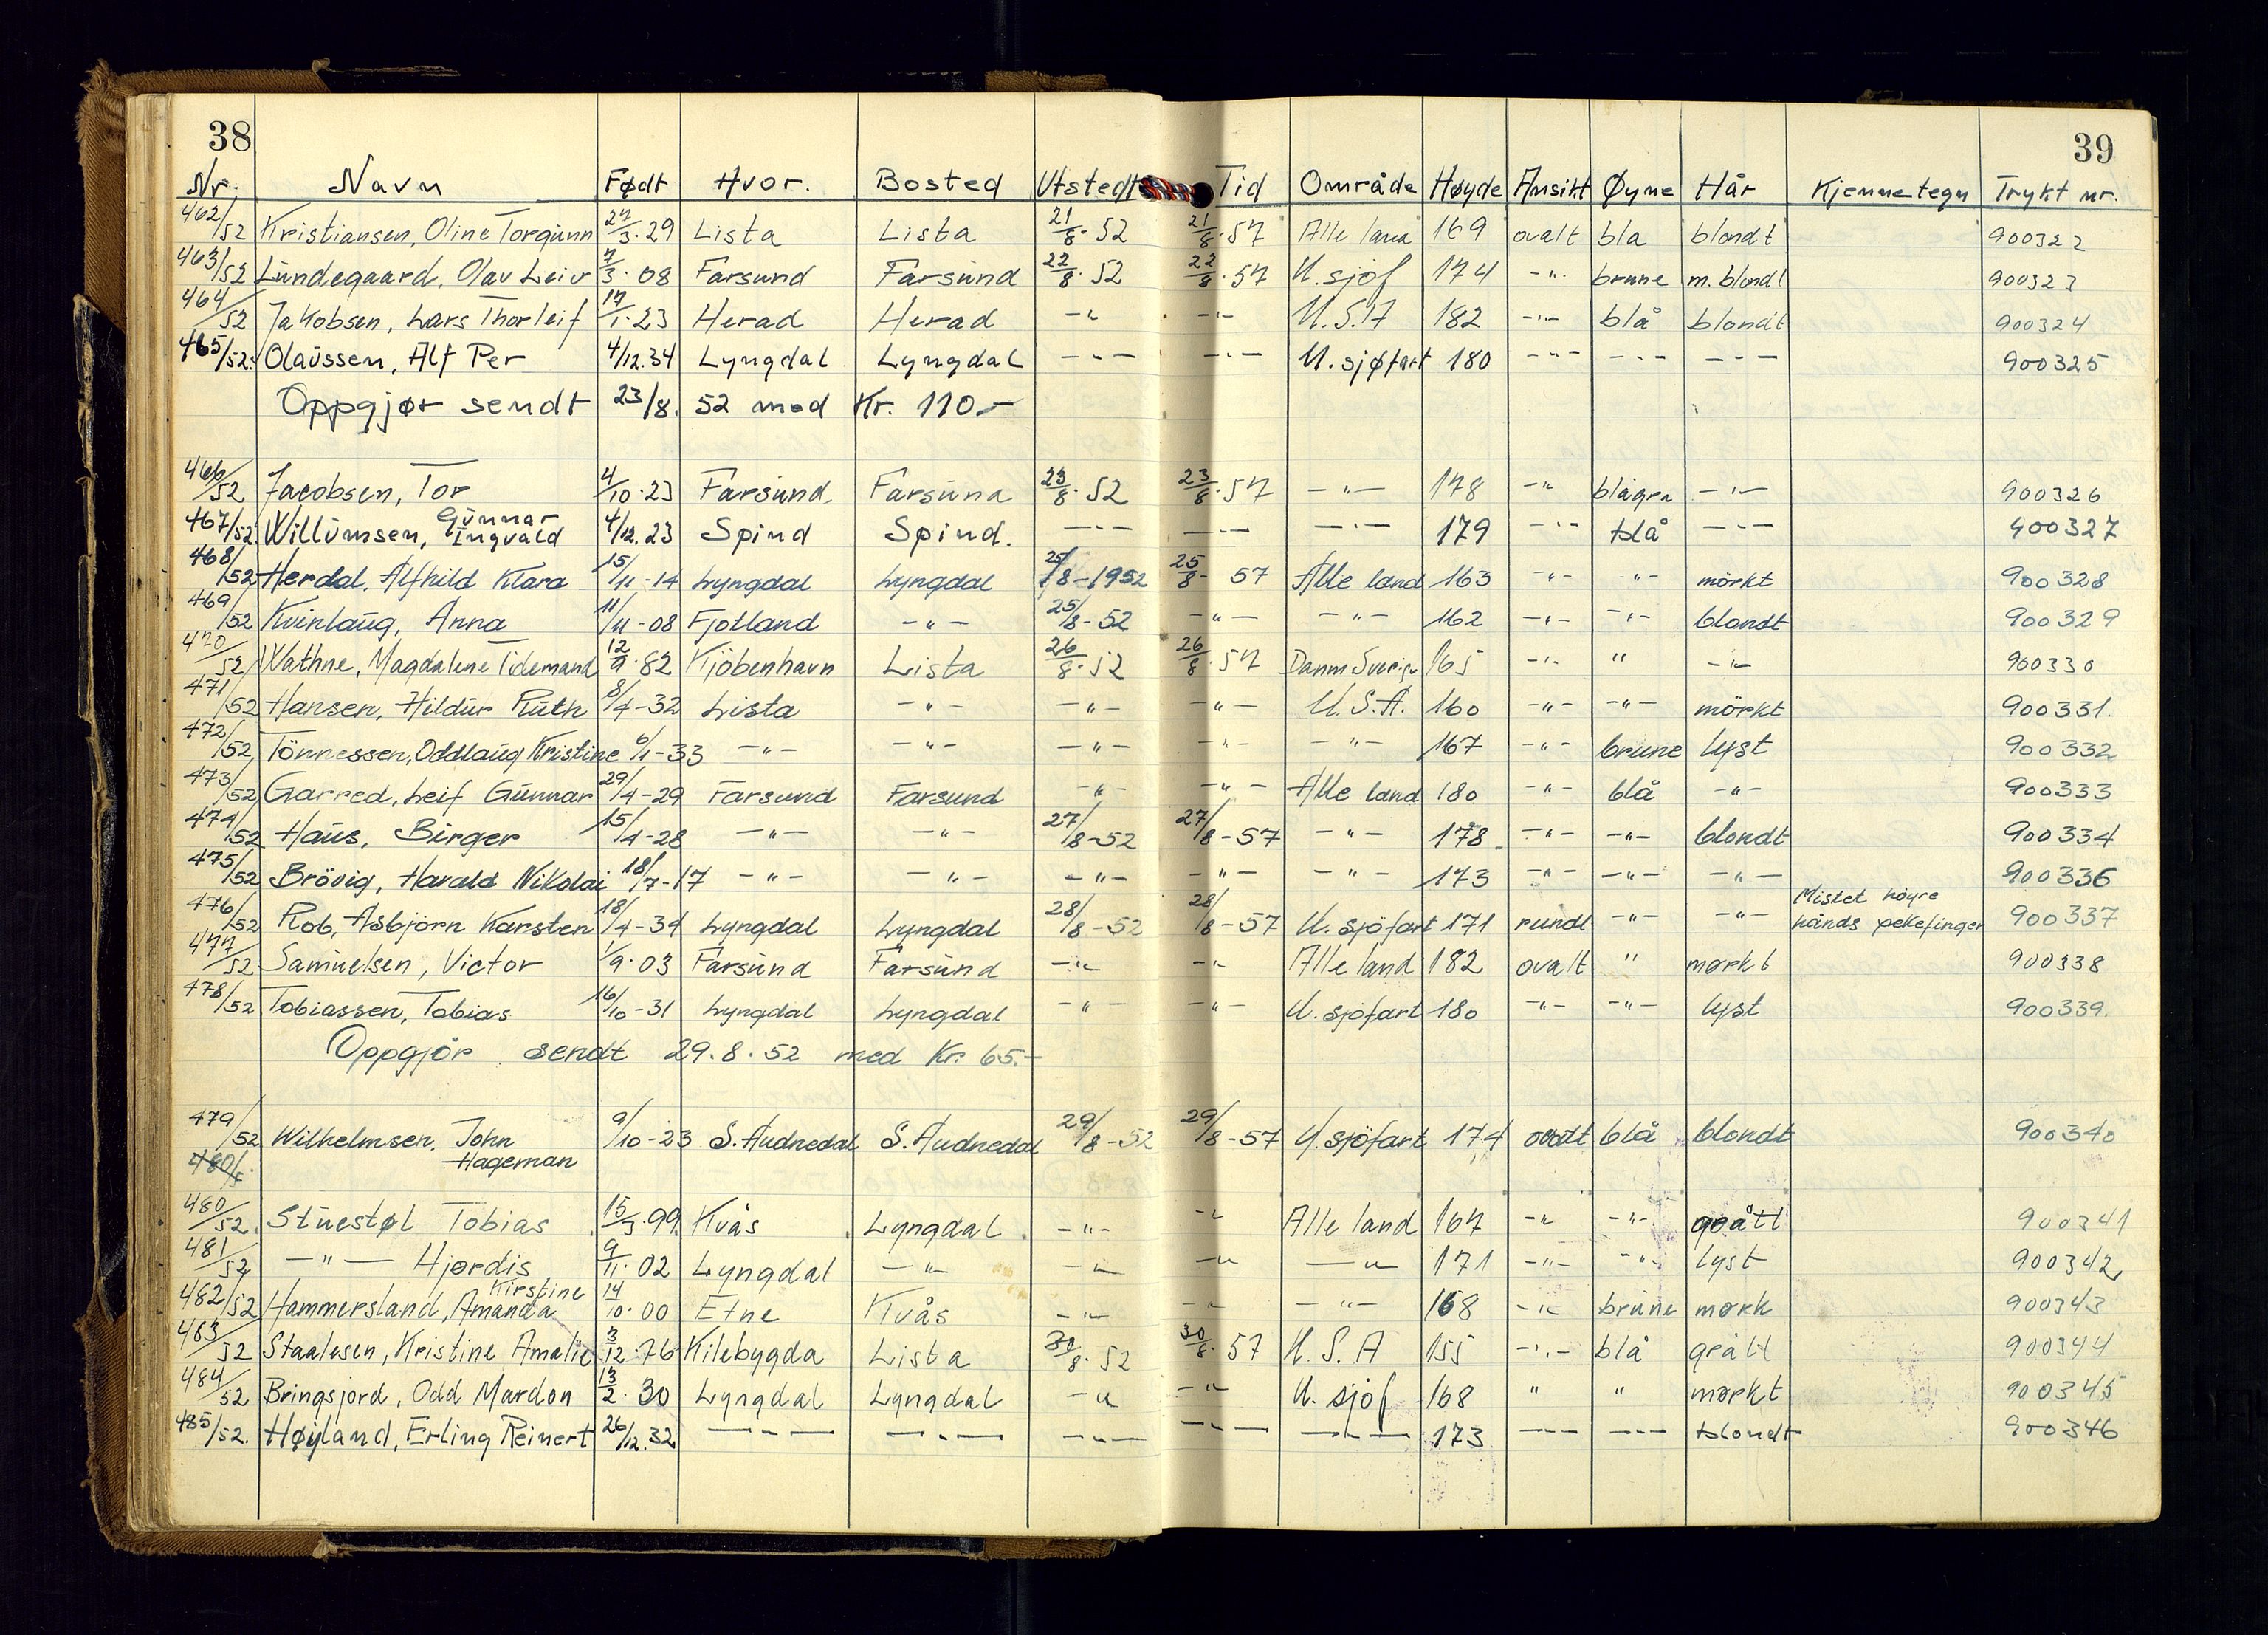 38
39
Nr. Navn Født Hvor. Bosted Utstedt Tid Område Høyde Ansikt Øyne Hår Kjennetegn Trykt nr.
462/52 Kristiansen, Oline Torgunn 27/3.29 Lista Lista 21/8.52 21/8.57 Alle land 169 ovalt blå blondt 900322
463/52 Lundegaard, Olav Leiv 7/3.08 Farsund Farsund 22/8.52 22/8.57 U.sjøf 174 -"- brune m.blondt 900323
464/52 Jakobsen, Lars Thorleif 17/1.23 Herad Herad -"- -"- U.S.A 182 -"- blå blondt 900324
465/52. Olaussen, Alf Per 4/12.34 Lyngdal Lyngdal -"- -"- U.sjøfart 180 -"- -"- -"- 900325
Oppgjør sendt 23/8. 52 med Kr. 110.-
466/52 Jacobsen, Tor 4/10.23 Farsund, Farsund 23/8.52 23/8.57 -"- 178 -"- blågrå -"- 900326
467/52. Willumsen, Gunnar Ingvald 4/12.23 Spind Spind. -"- -"- -"- 179 -"- blå -"- 900327
468/52 Herdal, Alfhild Klara 15/11-14 Lyngdal Lyngdal 25/8-1952 25/8-57 Alle land 163 -"- -"- mörkt 900328
469/52 Kvinlaug, Anna 11/11-08 Fjotland -"- 25/8-52 -"- -"- 162 -"- -"- blondt 900329
470/52 Wathne, Magdalene Tidemand 12/9.82 Kjöbenhavn Lista 26/8.52 26/8.57 Danm Sverige 165 -"- " -"- 900330
471/52 Hansen, Hildur Ruth 8/4-32 Lista -"- -"- -"- U.S.A. 160 -"- -"- mörkt 900331.
472/52 Tönnessen, Oddlaug Kristine 6/1-33 -"- -"- -"- -"- -"- 167 -"- brune lyst 900332
473/52 Garred, Leif Gunnar 29/4-29 Farsund Farsund -"- -"- Alle land 180 -"- blå -"- 900333
474/52 Haus, Birger 15/4-28 -"- -"- 27/8-52 27/8-57 -"- 178 -"- -"- blondt 900334
475/52 Brövig, Harald Nikolai 18/7-17 -"- -"- -"- -"- -"- 173 -"- -"- -"- 900336
476/52 Rob, Asbjörn Karsten 18/4-34 Lyngdal Lyngdal 28/8-52 28/8-57 U.sjöfart 171 rundt -"- -"- Mistet högre hånds pekefinger 900337
477/52 Samuelsen, Victor 1/9.03 Farsund Farsund -"- -"- Alle land 182 ovalt " mørkt 900338
478/52 Tobiassen, Tobias 16/10-31 Lyngdal Lyngdal -"- -"- U.sjöfart 180 -"- -"- lyst 900339.
Oppgjör sendt 29.8.52 med Kr. 65.-
479/52 Wilhelmsen, John Hageman 9/10-23 S.Audnedal S.Audnedal 29/8-52 29/8-57 U.sjöfart 174 ovalt blå blondt 900340
480/5
480/52. Stuestøl Tobias 15/3.99 Kvås Lyngdal -"- -"- Alle land 167 -"- -"- grått 900341
481/52 -"- Hjørdis 9/11.02 Lyngdal -"- -"- -"- -"- 171 -"- -"- lyst 900342
482/52 Hammersland, Amanda Kirstine 14/10.00 Etne Kvås -"- -"- -"- 168 -"- brune mørk 900343
483/52 Staalesen, Kristine Amalie 3/12.76 Kilebygda Lista 30/8.52 30/8.57 U.S.A 155 -"- blå grått 900344
484/52 Bringsjord, Odd Mardon 13/2.30 Lyngdal Lyngdal -"- -"- U.sjøf 168 " " mørkt 900345
485/52. Høyland, Erling Reinert 26/12.32 -"- -"- -"- -"- -"- 173 -"- -"- blondt 900346